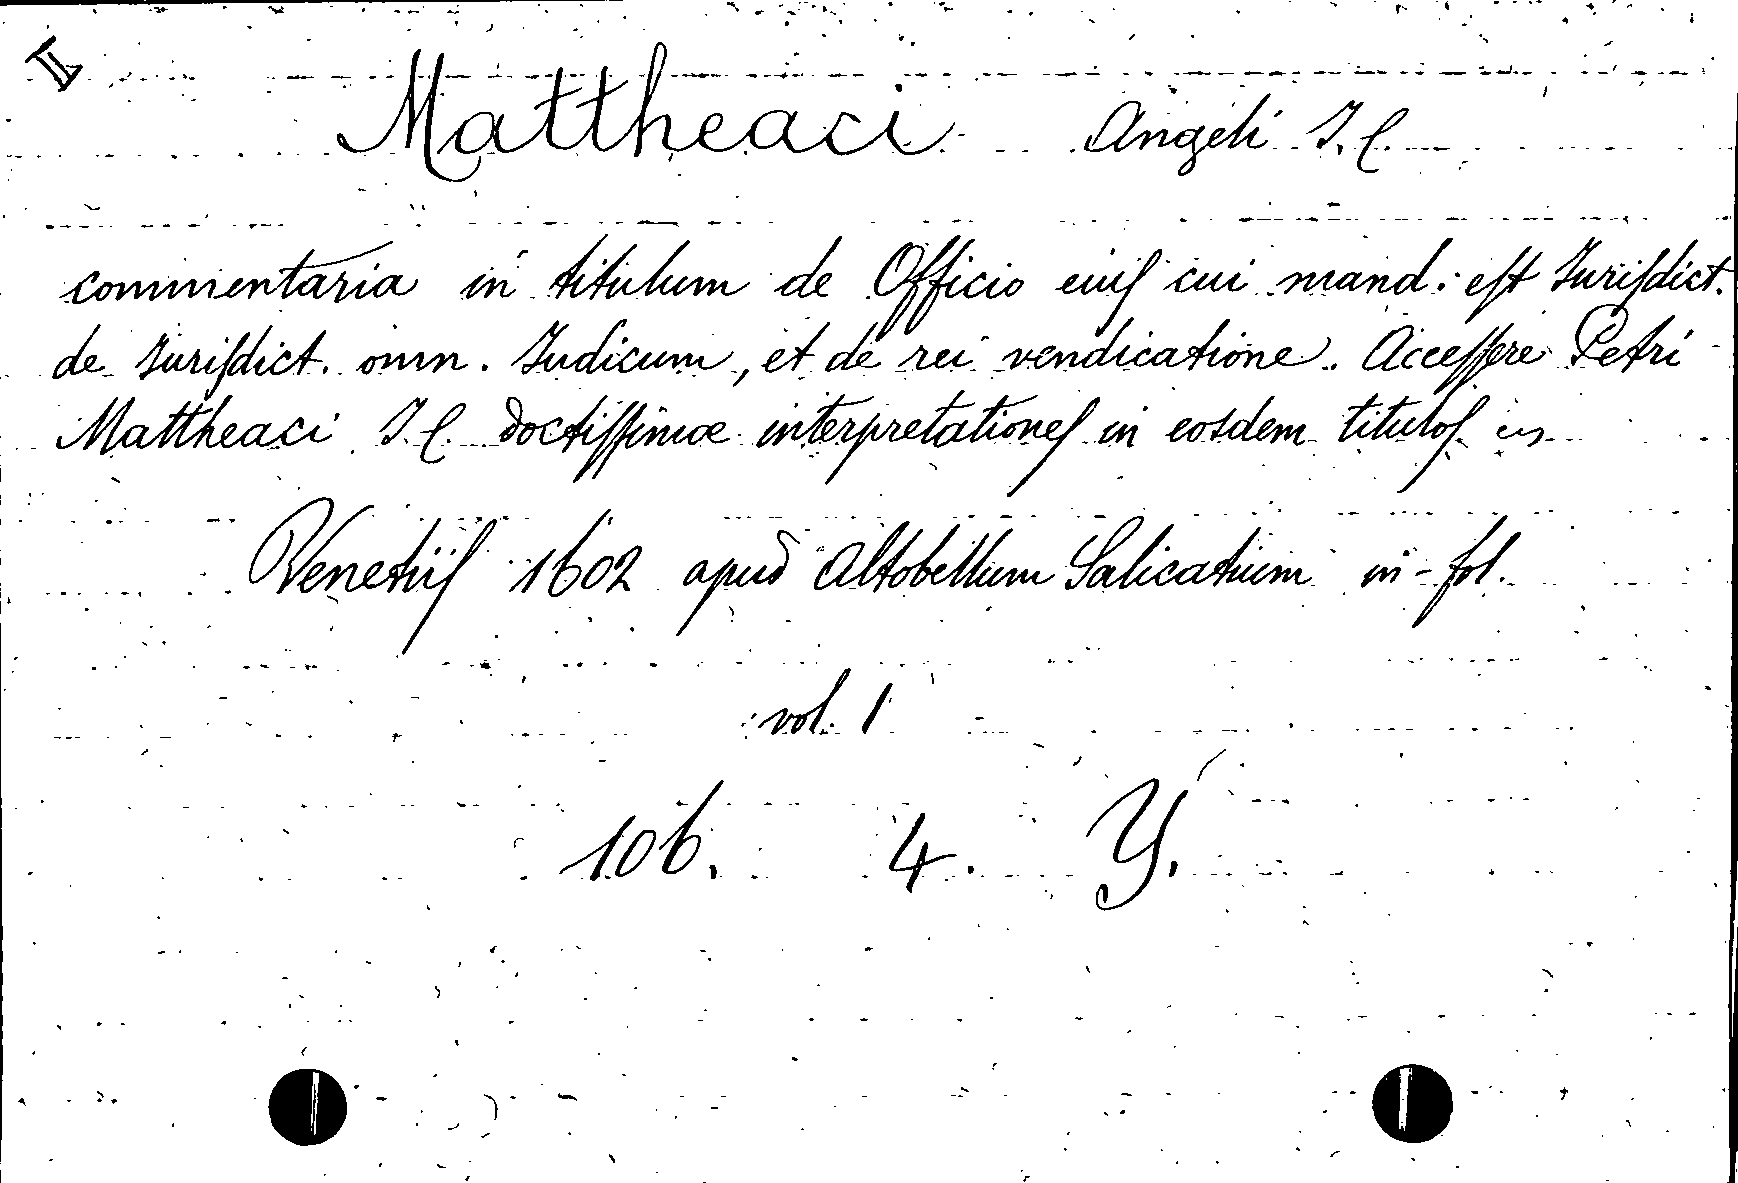 I
Mattheaci Angeli I. C.
commentaria in titulum de Officio euiſ cui mand: eſt Iuriſdict.
de Iuriſdict. omn. Iudicum, et de rei vendicatione. Acceſſere Petri
Mattheaci I. C. doctiſſimæ interpretationeſ in eosdem tituloſ
Venetiiſ 1602 apud Altobellum Salicatium in-fol.
vol. 1
106. 4. Y.